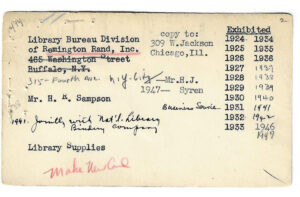 Library Bureau Division
of Remington Rand, Inc.
465 Washington Street
Buffalo, N.Y.
315- Fourth Ave N.Y. City
Mr. H. K. Sampson
1941. Jointly with Nat'l. Library
Bindery Company
Library Supplies
Make New Card
copy to:
309 W.Jackson
Chicago,Ill.
Mr.H.J.
1947— Syren
Business Service
Exhibited
1924 1934
1925 1935
1926 1936
1927 1937
1928 1938
1929 1939
1930 1940
1931 1941
1932 1942
1933 1946
1947